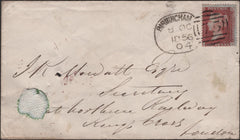 BIRMINGHAM
9 OC
1856
04
J R Mowatt Esqre
Secretary
Northern Railway
Kings Cross
London